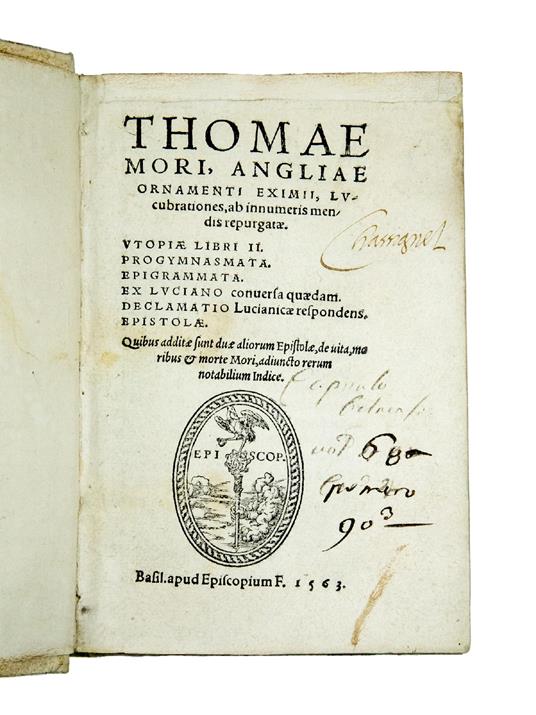 THOMAE
MORI, ANGLIAE
ORNAMENTI EXIMII, LV-
cubrationes, ab innumeris men-
dis repurgatæ.
VTOPIÆ LIBRI II.
PROGYMNASMATA.
EPIGRAMMATA.
EX LVCIANO conuersa quædam.
DECLAMATIO Lucianicæ respondens.
EPISTOLÆ.
Quibus additæ sunt duæ aliorum Epistolæ, de uita, mo
ribus & morte Mori, adiuncto rerum
notabilium Indice.
Chassignet
EPI SCOP.
680
903
Basil. apud Episcopium F. 1563.